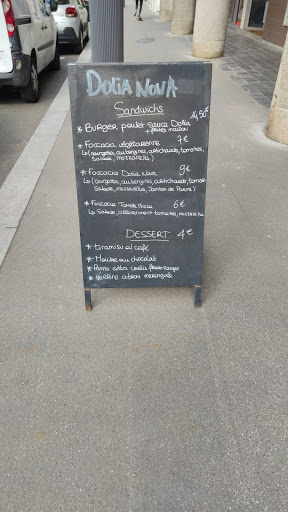 DOLIA NOVA
Sandwichs
* BURGER poulet sauce Dolia 14,50€
+ frites maison
* Focaccia végétarienne 7€
(courgettes, aubergines, artichauds, tomates,
Salade, mozzarella)
* Focaccia Dolia Nova 9€
(courgettes, aubergines, artichauds, tomate
Salade, mozzarella, Jambon de Parme)
* Focacia Tomate 6€
Salade, assortiment tomates, mozzarella
DESSERT 4€
* tiramisu al café
* Mousse au chocolat
* Panna cotta fruits rouges
* tarte citron meringuée